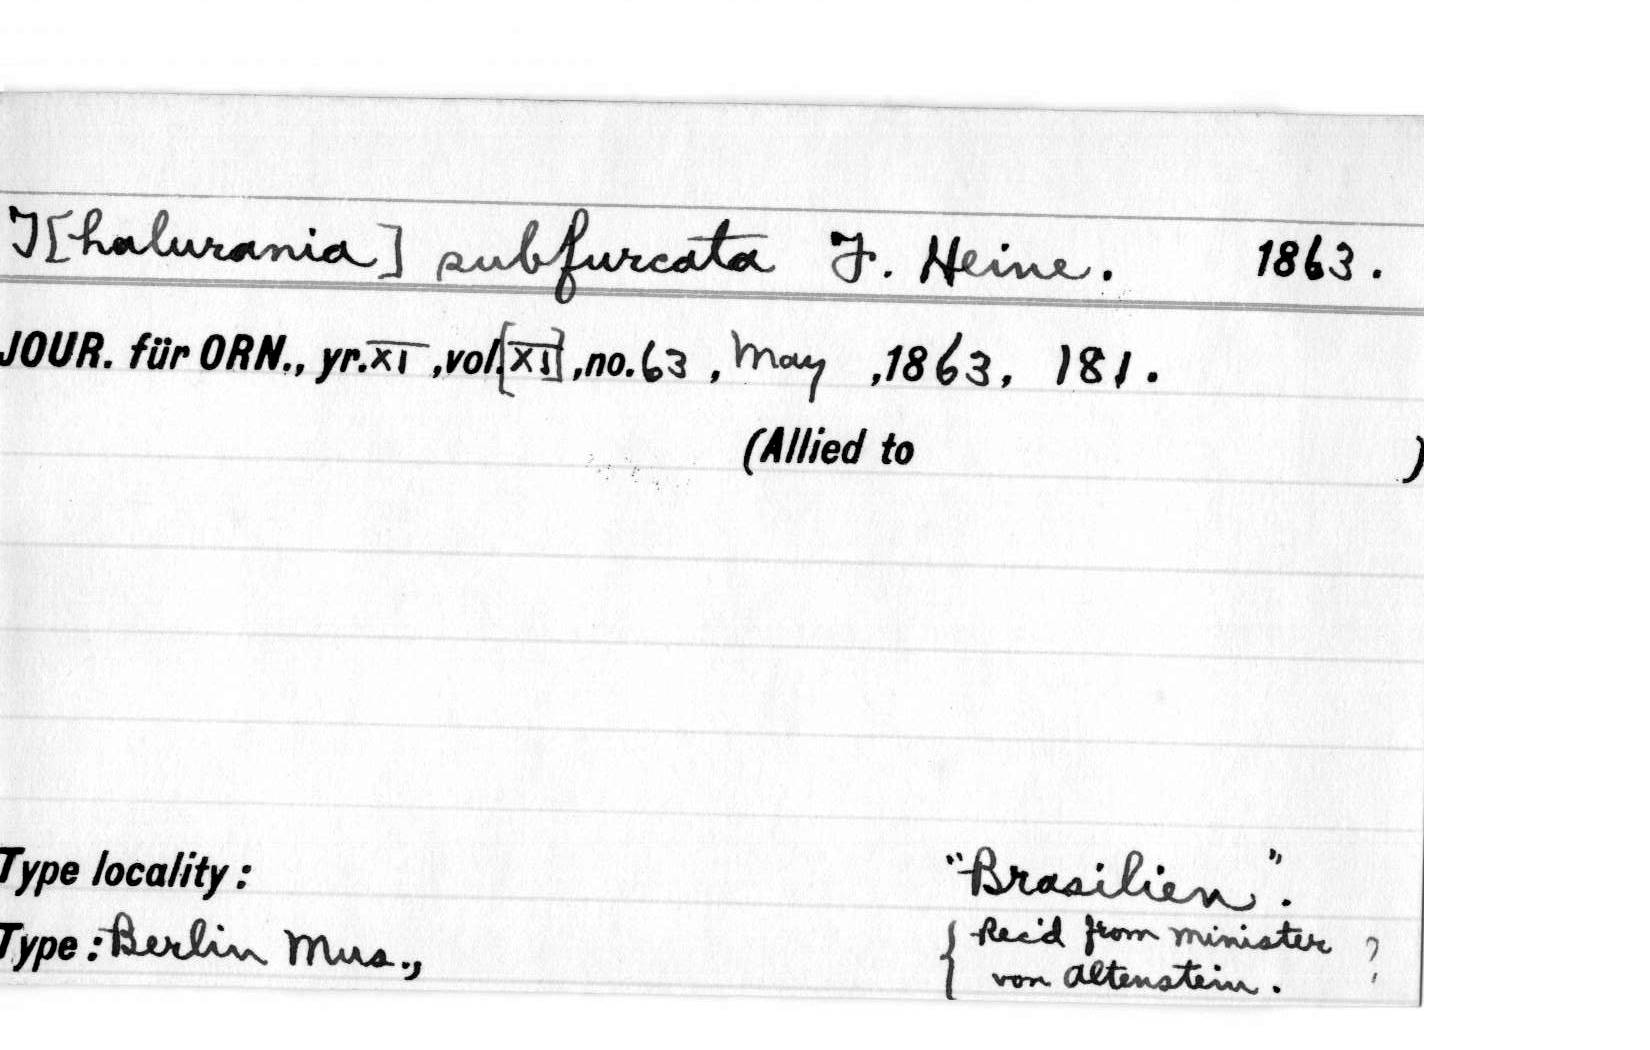 T[halurania] subfurcata F. Heine. 1863.
JOUR. für ORN., yr.XI ,vol.[XI] ,no.63 , May ,1863, 181.
(Allied to )
Type locality : "Brasilien".
Type : Berlin Mus., { Rec'd from minister
von Altenstein. }